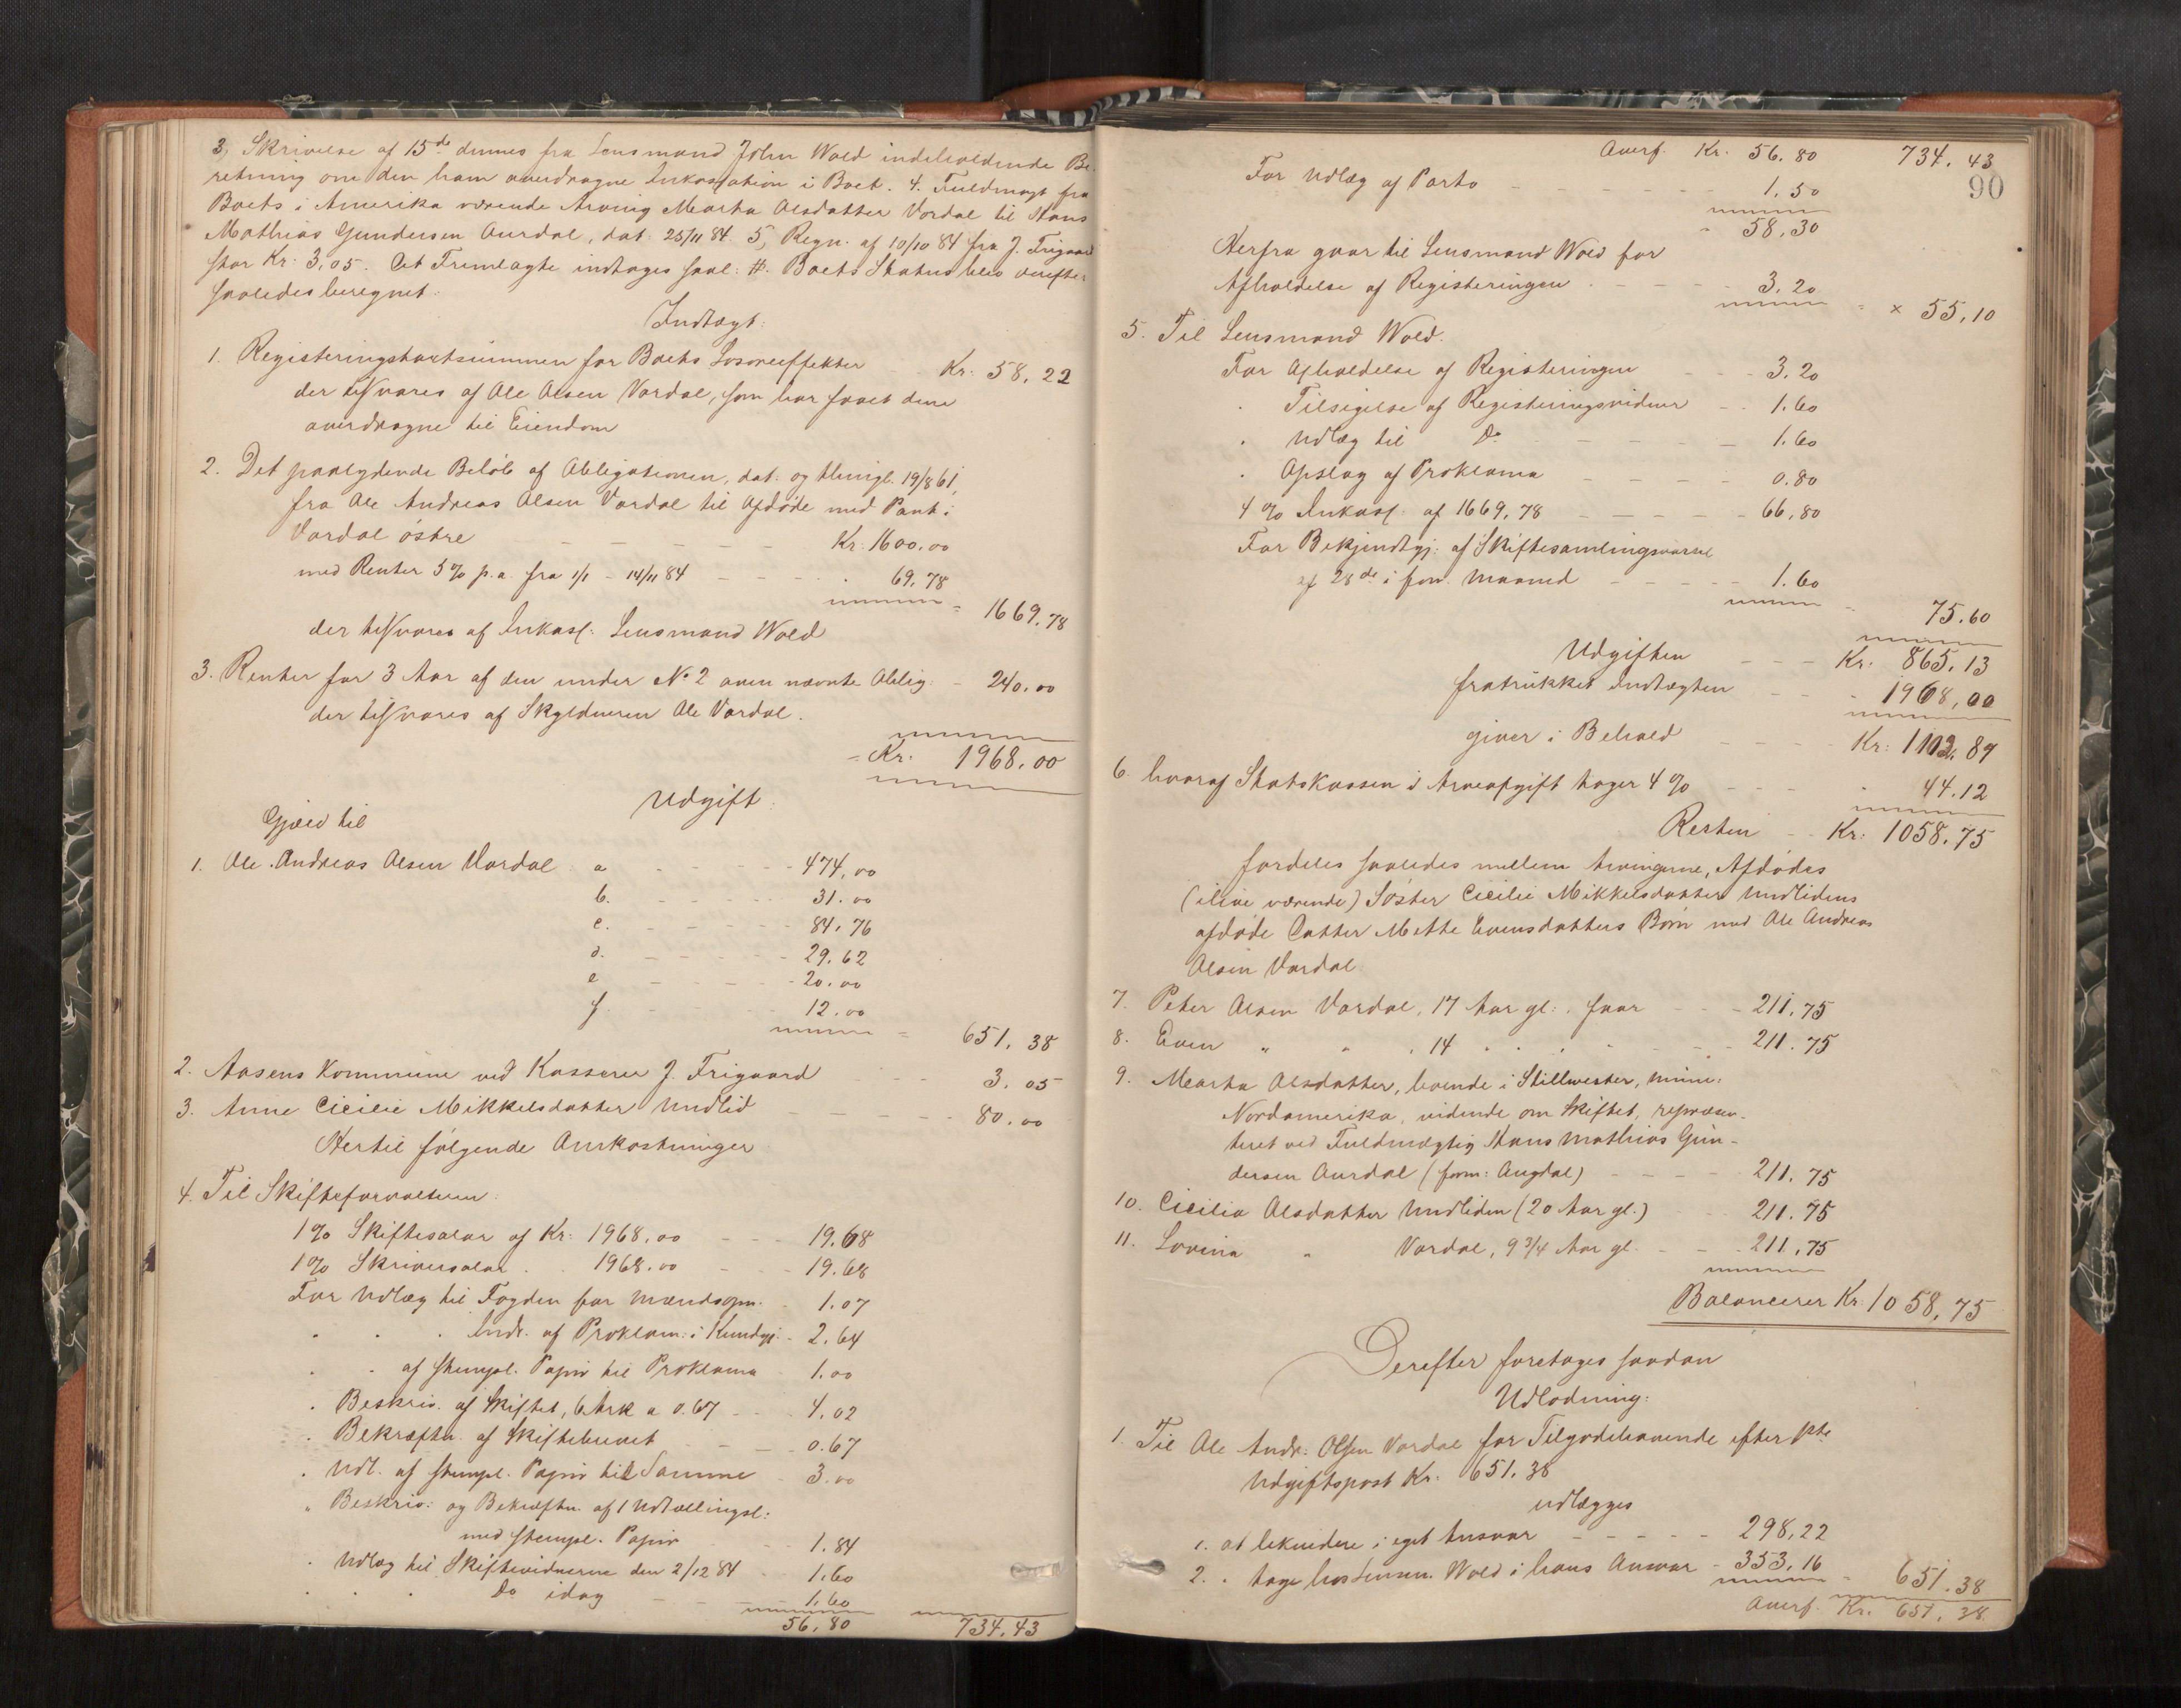 3, Skrivelse af 15de dennes fra Lensmand John Wold indeholdende Be-
retning om den ham overdragne Inkassation i Boet. 4. Fuldmagt fra
Boets i Amerika værende Arving Marta Olsdatter Vordal til Hans
Mathias Gundersen Aurdal, dat. 25/11 84. 5, Regn. af 10/10 84 fra J. Frigaard
stor Kr: 3,05. Det Fremlagte indtages saal: #. Boets Status blev derefter
saaledes beregnet:
Indtægt:
1. Registeringstaxtsummen for Boets Løsøreeffekter Kr: 58,22
der tilsvares af Ole Olsen Vordal, som har faaet dem
overdragne til Eiendom
2. Det paalydende Beløb af Obligationen, dat. og thingl. 19/8 61,
fra Ole Andreas Olsen Vordal til Afdøde med Pant i
Vordal østre Kr: 1600.00
med Renter 5% p.a. fra 1/1 - 14/11 84 69.78
= 1669.78
der tilsvares af Inkass: Lensmand Wold
3. Renter for 3 Aar af den under No 2 oven nævnte Oblig: 240.00
der tilsvares af Skyldneren Ole Vordal.
= Kr. 1968.00
Udgift:
Gjæld til
1. Ole Andreas Olsen Vordal a 474,00
b. 31.00
c. 84,76
d. 29.62
e 20.00
f. 12.00
= 651.38
2. Aasens Kommune ved Kasserer J. Frigaard 3.05
3. Anne Cicilie Mikkelsdatter Undlid 80.00
Hertil følgende Omkostninger
4. Til Skifteforvalteren:
1% Skiftesalar af Kr: 1968,00 19.68
1% Skriversalar . . 1968.00 19.68
For Udlæg til Fogden for Mændsopn. 1.07
. . . Indr. af Proklam: i Kundgj: 2.64
. . af stempl. Papir til Proklama 1.00
. Beskriv. af Skiftet, 6 Ark a 0.67 4.02
. Bekræftn. af Skiftebrevet 0.67
. Udl. af stempl. Papir til Samme 3.00
" Beskriv: og Bekræftn. af 1 Udtællingsl:
med stempl. Papir 1.84
. Udlæg til Skiftevidnerne den 2/12 84 1.60
. . . Do idag 1.60
56,80 734.43
Overf. Kr. 56.80 734.43
90
For Udlæg af Porto 1.50
58,30
Herfra gaar til Lensmand Wold for
Afholdelse af Registeringen 3.20
= × 55,10
5. Til Lensmand Wold.
For Afholdelse af Registeringen 3.20
. Tilsigelse af Registeringsvidner 1.60
. Udlæg til Do 1.60
. Opslag af Proklama 0.80
4% Inkass. af 1669.78 66,80
For Bekjendtgj. af Skiftesamlingsvarsel
af 28de i forr. Maaned 1.60
= 75.60
Udgiften Kr: 865.13
fratrukket Indtægten 1968,00
giver i Behold Kr: 1102.87
6. hvoraf Statskassen i Arveafgift tager 4% 44.12
Resten Kr: 1058.75
fordeles saaledes mellem Arvingerne, Afdødes
(ilive værende) Søster Cicilie Mikkelsdatter Undlidens
afdøde Datter Mette Evensdatters Børn med Ole Andreas
Olsen Vordal.
7. Peter Olsen Vordal, 17 Aar gl:, faar 211.75
8. Even " " , 14 " . 211.75
9. Marta Olsdatter, boende i Stillwester, Mine:
Nordamerika, vidende om Skiftet, repræsen-
teret ved Fuldmægtig Hans Mathias Gun-
dersen Aurdal (form: Augdal) 211.75
10. Cicilia Olsdatter Undliden (20 Aar gl.) 211.75
11. Lovina " Vordal, 9 3/4 Aar gl. 211,75
Balancerer Kr: 1058,75
Derefter foretages saadan
Udlodning:
1. Til Ole Andr. Olsen Vordal for Tilgodehavende efter 1ste
Udgiftspost Kr. 651.38
udlægges
1. at likvidere i eget Ansvar 298,22
2. . tage hos Lensm. Wold i hans Ansvar 353,16 = 651.38
Overf. Kr. 651.38